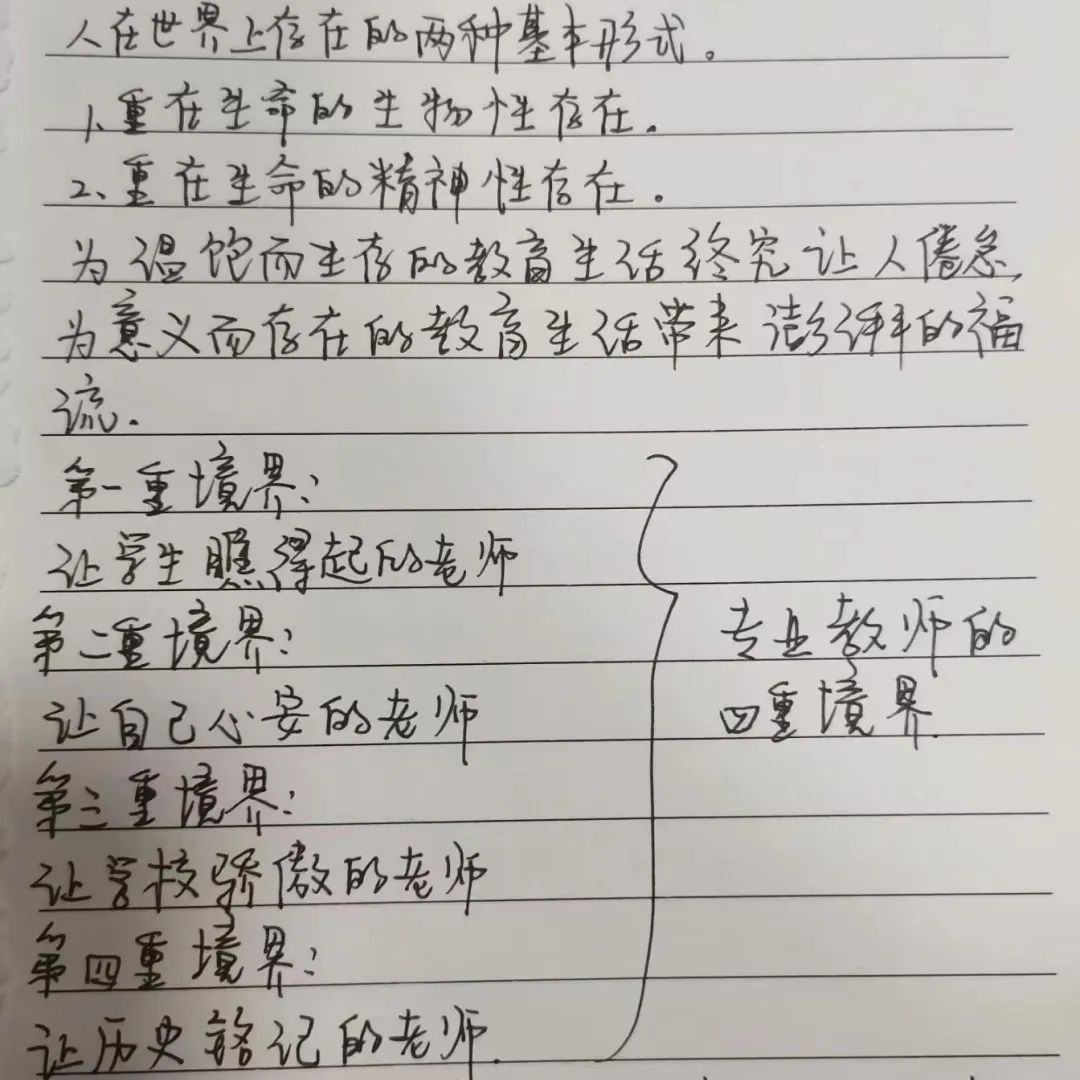 人在世界上存在的两种基本形式。
1、重在生命的生物性存在。
2、重在生命的精神性存在。
为温饱而生存的教育生活终究让人倦怠,
为意义而存在的教育生活带来澎湃的福
流.
第一重境界:
让学生瞧得起的老师
第二重境界:
让自己心安的老师
第三重境界:
让学校骄傲的老师
第四重境界:
让历史铭记的老师.
专业教师的
四重境界.